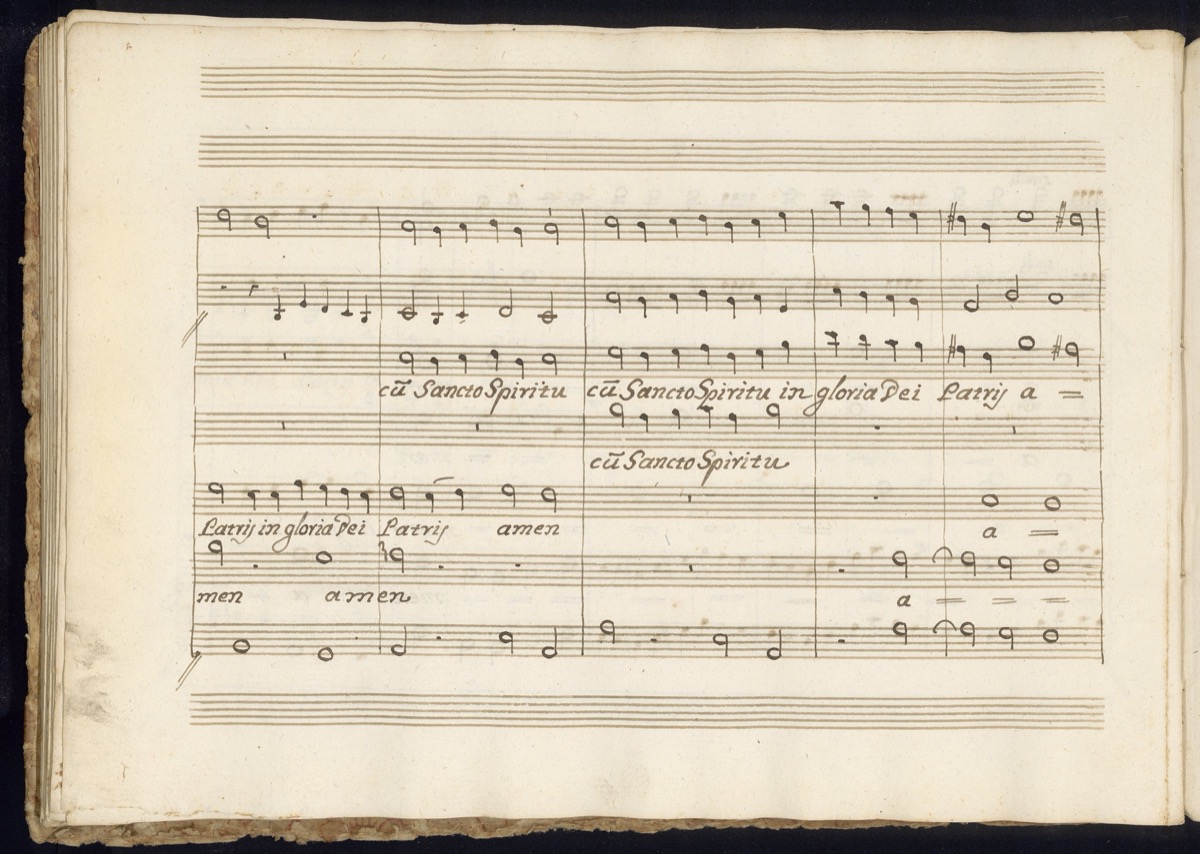 cū Sancto Spiritu cū Sancto Spiritu in gloria Dei Patris a =
cū Sancto Spiritu
Patris in gloria Dei Patris amen a =
men amen a = = =